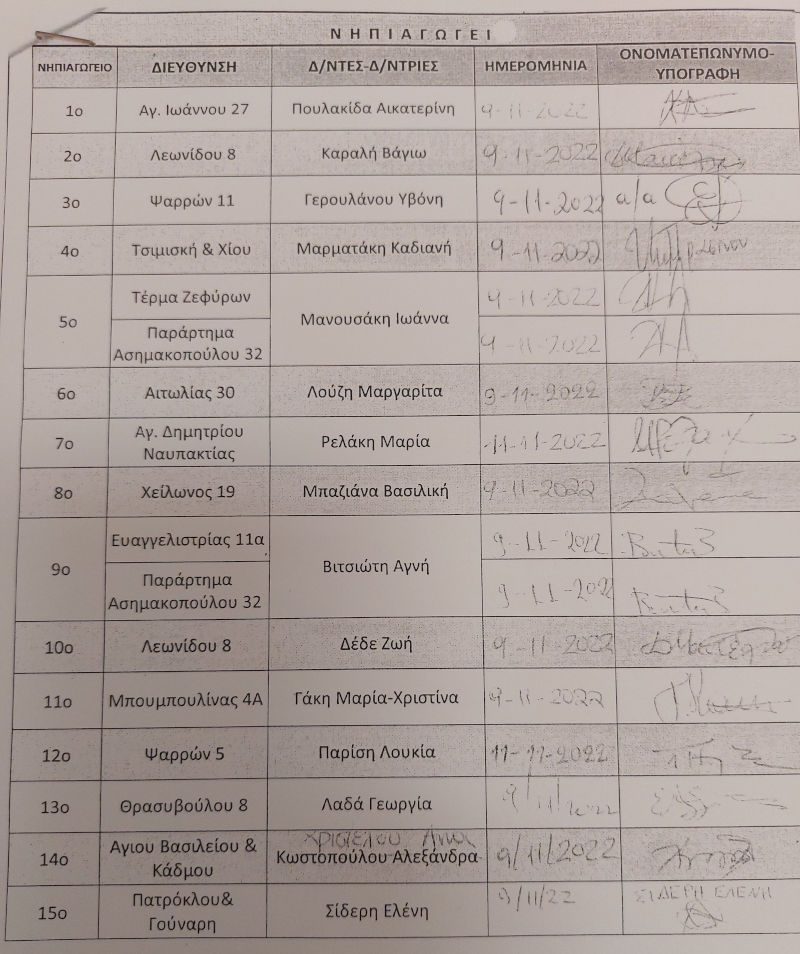 ΝΗΠΙΑΓΩΓΕΙ
ΝΗΠΙΑΓΩΓΕΙΟ ΔΙΕΥΘΥΝΣΗ Δ/ΝΤΕΣ-Δ/ΝΤΡΙΕΣ ΗΜΕΡΟΜΗΝΙΑ ΟΝΟΜΑΤΕΠΩΝΥΜΟ-
ΥΠΟΓΡΑΦΗ
1ο Αγ. Ιωάννου 27 Πουλακίδα Αικατερίνη 9-11-2022
2ο Λεωνίδου 8 Καραλή Βάγιω 9-11-2022
3ο Ψαρρών 11 Γερουλάνου Υβόνη 9-11-2022 α/α
4ο Τσιμισκή & Χίου Μαρματάκη Καδιανή 9-11-2022
5ο Τέρμα Ζεφύρων Μανουσάκη Ιωάννα 9-11-2022
Παράρτημα
Ασημακοπούλου 32 9-11-2022
6ο Αιτωλίας 30 Λούζη Μαργαρίτα 9-11-2022
7ο Αγ. Δημητρίου
Ναυπακτίας Ρελάκη Μαρία 11-11-2022
8ο Χείλωνος 19 Μπαζιάνα Βασιλική 9-11-2022
9ο Ευαγγελιστρίας 11α Βιτσιώτη Αγνή 9-11-2022
Παράρτημα
Ασημακοπούλου 32 9-11-2022
10ο Λεωνίδου 8 Δέδε Ζωή 9-11-2022
11ο Μπουμπουλίνας 4Α Γάκη Μαρία-Χριστίνα 9-11-2022
12ο Ψαρρών 5 Παρίση Λουκία 11-11-2022
13ο Θρασυβούλου 8 Λαδά Γεωργία 9/11/2022
14ο Αγιου Βασιλείου &
Κάδμου Κωστοπούλου Αλεξάνδρα 9/11/2022
15ο Πατρόκλου&
Γούναρη Σίδερη Ελένη 9/11/22 ΣΙΔΕΡΗ ΕΛΕΝΗ